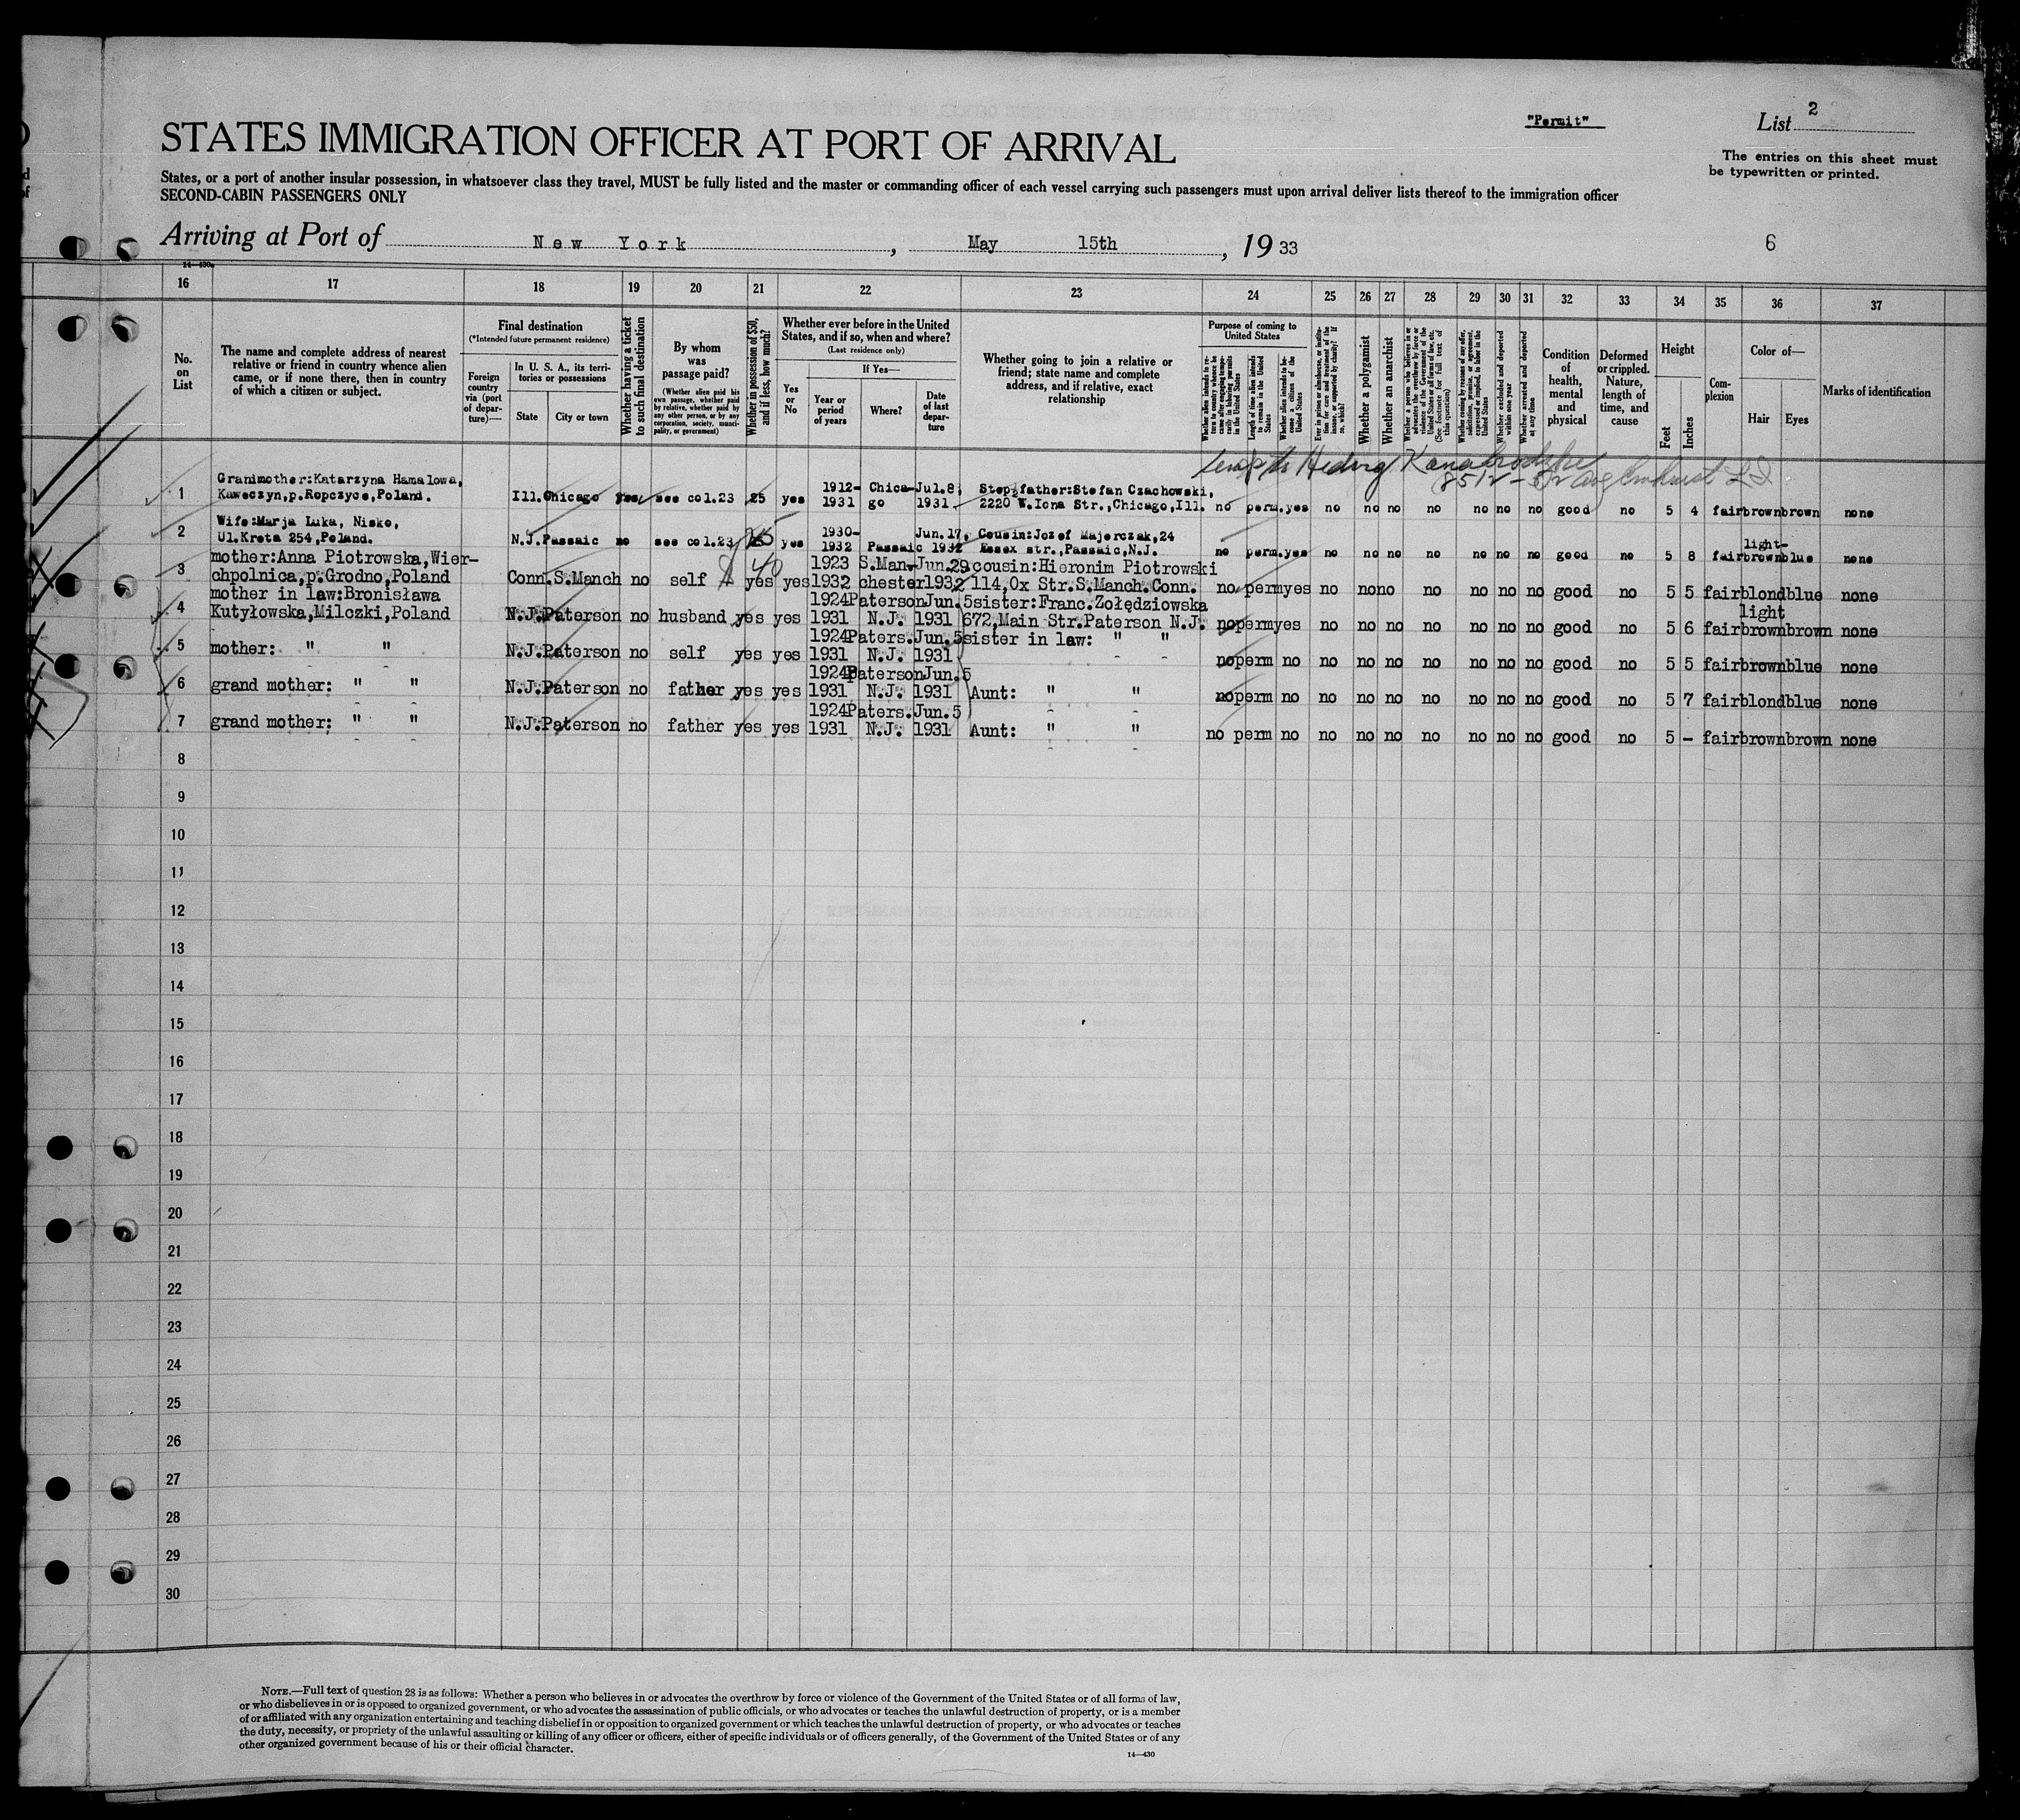 "Permit"
List 2
STATES IMMIGRATION OFFICER AT PORT OF ARRIVAL
The entries on this sheet must
be typewritten or printed.
States, or a port of another insular possession, in whatsoever class they travel, MUST be fully listed and the master or commanding officer of each vessel carrying such passengers must upon arrival deliver lists thereof to the immigration officer
SECOND-CABIN PASSENGERS ONLY
Arriving at Port of New York, May 15th, 1933
6
14—430a
16 17 18 19 20 21 22 23 24 25 26 27 28 29 30 31 32 33 34 35 36 37
No. on List
The name and complete address of nearest relative or friend in country whence alien came, or if none there, then in country of which a citizen or subject.
Final destination
(*Intended future permanent residence)
Foreign country via (port of departure)—
In U. S. A., its territories or possessions
State
City or town
Whether having a ticket to such final destination
By whom was passage paid?
(Whether alien paid his own passage, whether paid by relative, whether paid by any other person, or by any corporation, society, municipality, or government)
Whether in possession of $50, and if less, how much?
Whether ever before in the United States, and if so, when and where?
(Last residence only)
Yes or No
If Yes—
Year or period of years
Where?
Date of last departure
Whether going to join a relative or friend; state name and complete address, and if relative, exact relationship
Purpose of coming to United States
Whether alien intends to return to country whence he came after engaging temporarily in laboring pursuits in the United States
Length of time alien intends to remain in the United States
Whether alien intends to become a citizen of the United States
Ever in prison or almshouse, or institution for care and treatment of the insane, or supported by charity? If so, which?
Whether a polygamist
Whether an anarchist
Whether a person who believes in or advocates the overthrow by force or violence of the Government of the United States or all forms of law, etc. (See footnote for full text of this question)
Whether coming by reasons of any offer, solicitation, promise, or agreement, expressed or implied, to labor in the United States
Whether excluded and deported within one year
Whether arrested and deported at any time
Condition of health, mental and physical
Deformed or crippled. Nature, length of time, and cause
Height
Feet
Inches
Complexion
Color of—
Hair
Eyes
Marks of identification
Hedwig
1 Grandmother:Katarzyna Hamalowa, Kaweczyn,p.Ropczyce,Poland. Ill. Chicago yes see col.23 25 yes 1912-1931 Chicago Jul.8, 1931 Step-father:Stefan Czachowski, 2220 W.Iona Str.,Chicago,Ill. no perm. yes no no no no no no no good no 5 4 fair brown brown none
2 Wife:Marja Luka, Nisko, Ul.Kreta 254,Poland. N.J. Passaic no see col.23 25 yes 1930-1932 Passaic Jun.17, 1932 Cousin:Jozef Majerczak,24 Essex str.,Passaic,N.J. no perm. yes no no no no no no no good no 5 8 fair light-brown blue none
3 mother:Anna Piotrowska,Wier-chpolnica,p.Grodno,Poland Conn. S.Manch no self $40 yes yes 1923 1932 S.Man-chester Jun.29 1932 cousin:Hieronim Piotrowski 114,Ox Str.S.Manch.Conn. no perm yes no no no no no no no good no 5 5 fair blond blue none
4 mother in law:Bronisława Kutyłowska,Milczki,Poland N.J. Paterson no husband yes yes 1924 1931 Paterson N.J. Jun.5 1931 sister:Franc.Zołędziowska 672,Main Str.Paterson N.J. no perm yes no no no no no no no good no 5 6 fair light brown brown none
5 mother: " " N.J. Paterson no self yes yes 1924 1931 Paters. N.J. Jun.5 1931 sister in law: " " no perm no no no no no no no no good no 5 5 fair brown blue none
6 grand mother: " " N.J. Paterson no father yes yes 1924 1931 Paterson N.J. Jun.5 1931 Aunt: " " no perm no no no no no no no no good no 5 7 fair blond blue none
7 grand mother: " " N.J. Paterson no father yes yes 1924 1931 Paters. N.J. Jun.5 1931 Aunt: " " no perm no no no no no no no no good no 5 - fair brown brown none
8
9
10
11
12
13
14
15
16
17
18
19
20
21
22
23
24
25
26
27
28
29
30
NOTE.—Full text of question 28 is as follows: Whether a person who believes in or advocates the overthrow by force or violence of the Government of the United States or of all forms of law,
or who disbelieves in or is opposed to organized government, or who advocates the assassination of public officials, or who advocates or teaches the unlawful destruction of property, or is a member
of or affiliated with any organization entertaining and teaching disbelief in or opposition to organized government or which teaches the unlawful destruction of property, or who advocates or teaches
the duty, necessity, or propriety of the unlawful assaulting or killing of any officer or officers, either of specific individuals or of officers generally, of the Government of the United States or of any
other organized government because of his or their official character.
14—430